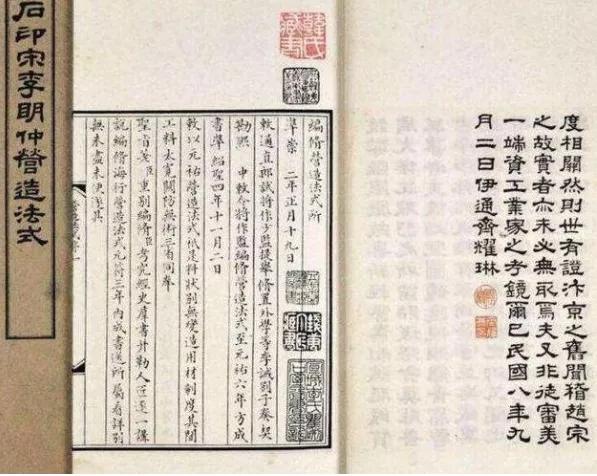 度相關然則世有證汴京之舊聞稽趙宋
之故實者亦未必無取焉夫又非徒審美
一端資工業家之考鏡爾已民國八年九
月二日伊通齊耀琳
編修營造法式所
準崇 二年正月十九日
敕通直郎試將作少監提舉修置外學等李誡劄子奏契
勘熙 中敕令將作監編修營造法式至元祐六年方成
書準紹聖四年十一月二日
敕以元祐營造法式秖是料狀別無變造用材制度其間
工料太寬關防無術三省同奉
聖旨差臣重別編修臣考究經史羣書并勒人匠逐一講
說編修海行營造法式元符三年內成書送所屬看詳別
無未盡未便遂具
石印宋李明仲營造法式